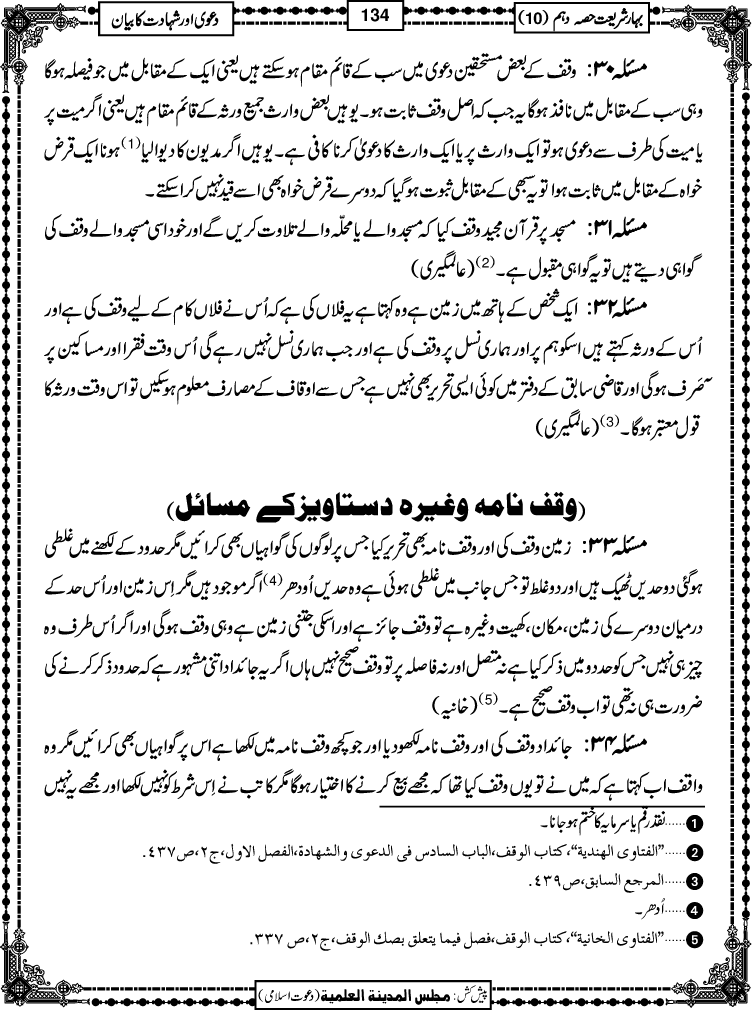 بہارِ شریعت حصہ دہم (10)
134
دعویٰ اور شہادت کا بیان
مسئلہ ۳۰: وقف کے بعض مستحقین دعویٰ میں سب کے قائم مقام ہوسکتے ہیں یعنی ایک کے مقابل میں جو فیصلہ ہوگا
وہی سب کے مقابل میں نافذ ہوگا یہ جب کہ اصل وقف ثابت ہو۔ یوہیں بعض وارث جمیع ورثہ کے قائم مقام ہیں یعنی اگر میت پر
یا میت کی طرف سے دعویٰ ہو تو ایک وارث پر یا ایک وارث کا دعویٰ کرنا کافی ہے۔ یوہیں اگر مدیون کا دیوالیا(1) ہونا ایک قرض
خواہ کے مقابل میں ثابت ہوا تو یہ سبھی کے مقابل ثبوت ہوگیا کہ دوسرے قرض خواہ بھی اسے قید نہیں کراسکتے۔
مسئلہ ۳۱: مسجد پر قرآن مجید وقف کیا کہ مسجد والے یا محلّہ والے تلاوت کریں گے اور خود اسی مسجد والے وقف کی
گواہی دیتے ہیں تو یہ گواہی مقبول ہے۔(2) (عالمگیری)
مسئلہ ۳۲: ایک شخص کے ہاتھ میں زمین ہے وہ کہتا ہے یہ فلاں کی ہے کہ اُس نے فلاں کام کے لیے وقف کی ہے اور
اُس کے ورثہ کہتے ہیں اسکو ہم پر اور ہماری نسل پر وقف کی ہے اور جب ہماری نسل نہیں رہے گی اُس وقت فقرا اور مساکین پر
صَرف ہوگی اور قاضی سابق کے دفتر میں کوئی ایسی تحریر بھی نہیں ہے جس سے اوقاف کے مصارف معلوم ہوسکیں تو اس وقت ورثہ کا
قول معتبر ہوگا۔(3) (عالمگیری)
(وقف نامہ وغیرہ دستاویز کے مسائل)
مسئلہ ۳۳: زمین وقف کی اور وقف نامہ بھی تحریر کیا جس پر لوگوں کی گواہیاں بھی کرائیں مگر حدود کے لکھنے میں غلطی
ہوگئی دو حدیں ٹھیک ہیں اور دو غلط تو جس جانب میں غلطی ہوئی ہے وہ حدیں اُودھر(4) اگر موجود ہیں مگر اِس زمین اور اُس حد کے
درمیان دوسرے کی زمین، مکان، کھیت وغیرہ ہے تو وقف جائز ہے اور اسکی جتنی زمین ہے وہی وقف ہوگی اور اگر اُس طرف وہ
چیز ہی نہیں جس کو حدود میں ذکر کیا ہے نہ متصل اور نہ فاصلہ پر تو وقف صحیح نہیں ہاں اگر یہ جائداد اتنی مشہور ہے کہ حدود ذکر کرنے کی
ضرورت ہی نہ تھی تو اب وقف صحیح ہے۔(5) (خانیہ)
مسئلہ ۳۴: جائداد وقف کی اور وقف نامہ لکھودیا اور جو کچھ وقف نامہ میں لکھا ہے اس پر گواہیاں بھی کرائیں مگر وہ
واقف اب کہتا ہے کہ میں نے تو یوں وقف کیا تھا کہ مجھے بیع کرنے کا اختیار ہوگا مگر کاتب نے اِس شرط کو نہیں لکھا اور مجھے یہ نہیں
1 ......نقد رقم یا سرمایہ کا ختم ہو جانا۔
2 ......"الفتاوی الهندية"، كتاب الوقف، الباب السادس فی الدعوی والشهادة، الفصل الاول، ج۲، ص۴۳۷.
3 ......المرجع السابق، ص۴۳۹.
4 ......اُدھر۔
5 ......"الفتاوی الخانية"، كتاب الوقف، فصل فيما يتعلق بصك الوقف، ج۲، ص ۳۳۷.
پیش کش: مجلس المدينة العلمية (دعوت اسلامی)